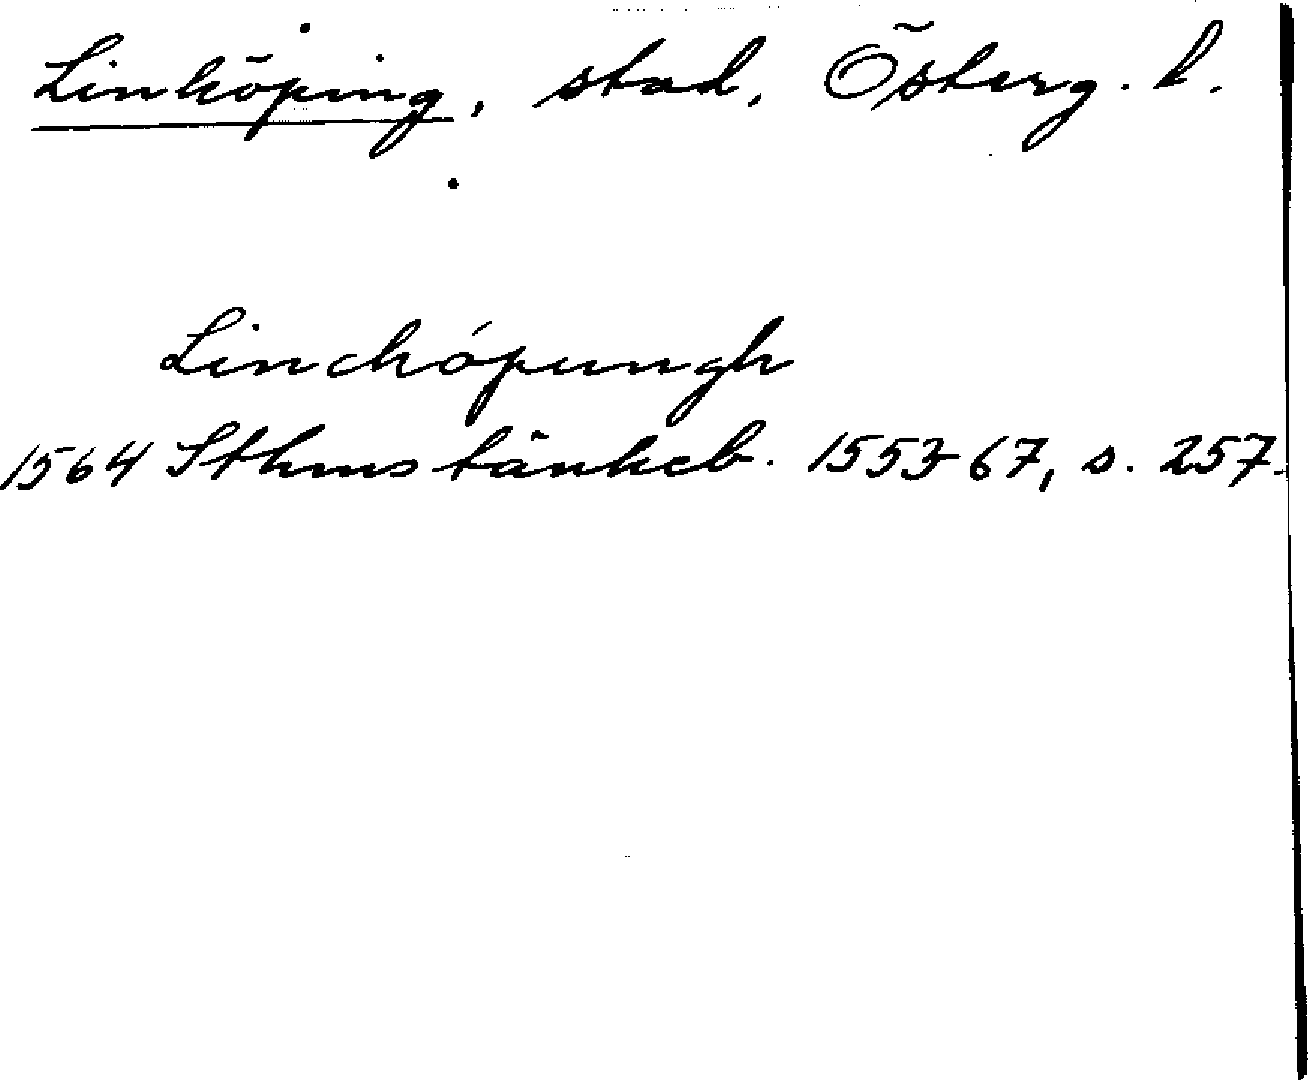 Linköping, stad, Österg. l.
Linckópungh
1564 Sthms tänkeb. 1553-67, s. 257.